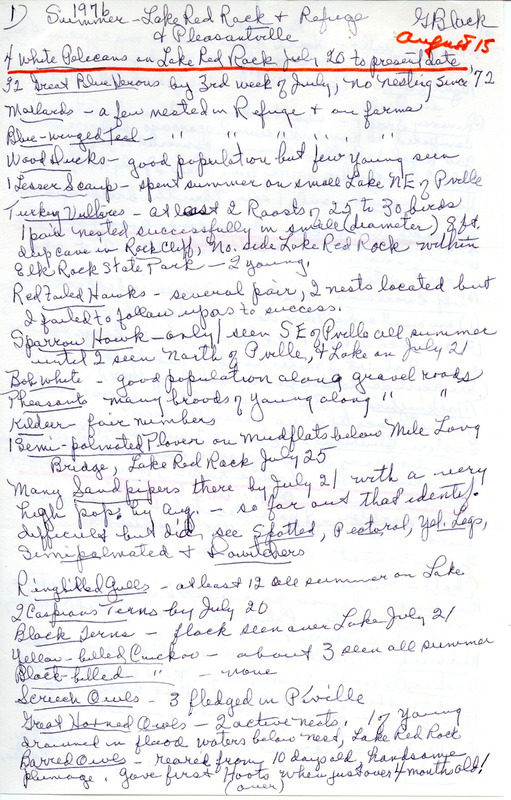 1) Summer - Lake Red Rock & Refuge
1976
G Black
& Pleasantville
August 15
4 White Pelicans on Lake Red Rock July 20 to present date
92 Great Blue Herons by 3rd week of July, no nesting since '72
Mallards - a few nested in Refuge & on farms
Blue-winged Teal - " " " " "
Wood Ducks - good population but few young seen
1 Lesser Scaup - spent summer on small Lake NE of Pville
Turkey Vultures - at least 2 Roosts of 25 to 30 birds
1 pair nested successfully in small (diameter) 8 ft.
deep cave in Rock cliff, No. side Lake Red Rock within
Elk Rock State Park - 2 young.
Red tailed Hawks - several pair, 2 nests located but
I failed to follow up as to success.
Sparrow Hawk - only 1 seen SE of Pville all summer
until 2 seen North of Pville, & Lake on July 21
Bob White - good population along gravel roads
Pheasants many broods of young along " "
Kildeer - fair numbers
1 Semi-palmated Plover on mudflats below Mile Long
Bridge, Lake Red Rock July 25
Many Sandpipers there by July 21 with a very
high pop. by Aug. - so far out that identif.
difficult but did see Spotted, Pectoral, Yel. Legs,
Semipalmated & Dowitchers
Ringbilled Gulls - at least 12 all summer on Lake
2 Caspian Terns by July 20
Black Terns - flock seen over Lake July 21
Yellow-billed Cuckoo - about 3 seen all summer
Black-billed " - none
Screech Owls - 3 fledged in P'ville
Great Horned Owls - 2 active nests. 1 of young
drowned in flood waters below nest, Lake Red Rock
Barred Owls - reared from 10 days old, handsome
plumage. Gave first Hoots when just over 4 months old!
(over)